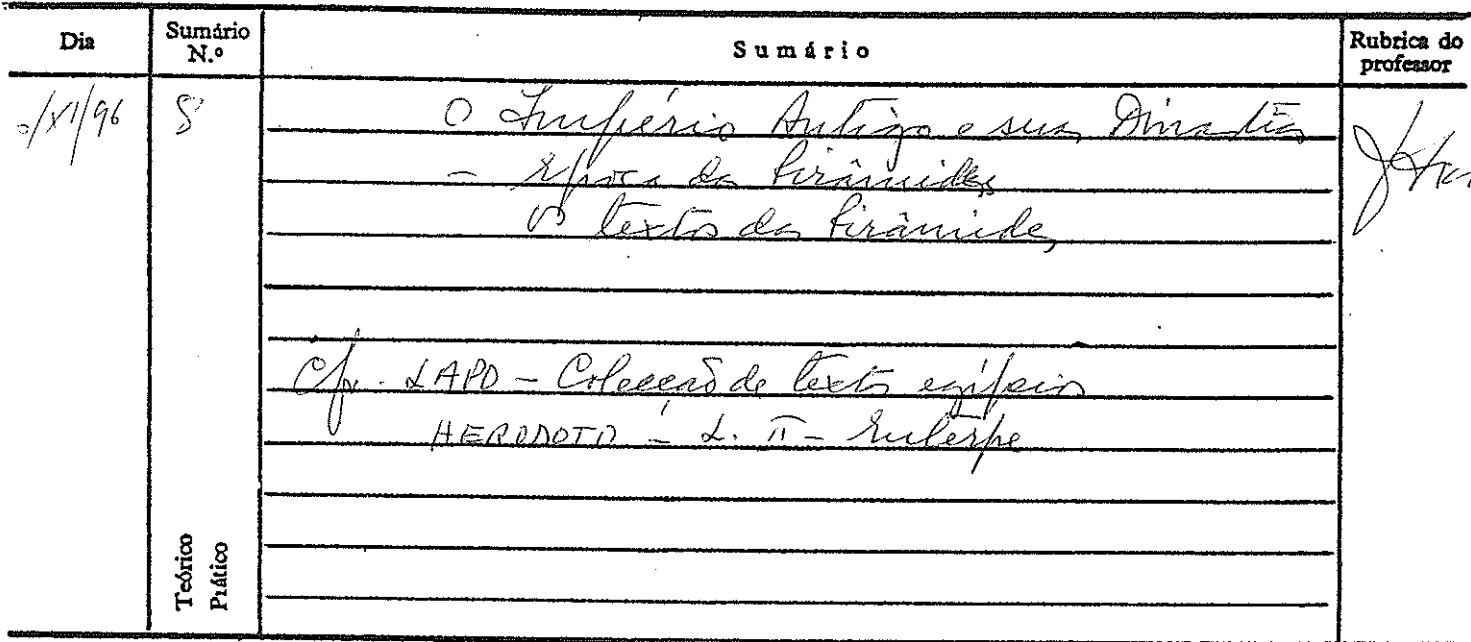 Dia
Sumário N.º
Sumário
Rubrica do professor
/XI/96
8
O Império Antigo e suas Dinastias
- Época das Pirâmides
Os textos das Pirâmides
Cfr. LAPO - Colecção de textos egípcios
HERODOTO - L. II - Euterpe
Teórico
Prático